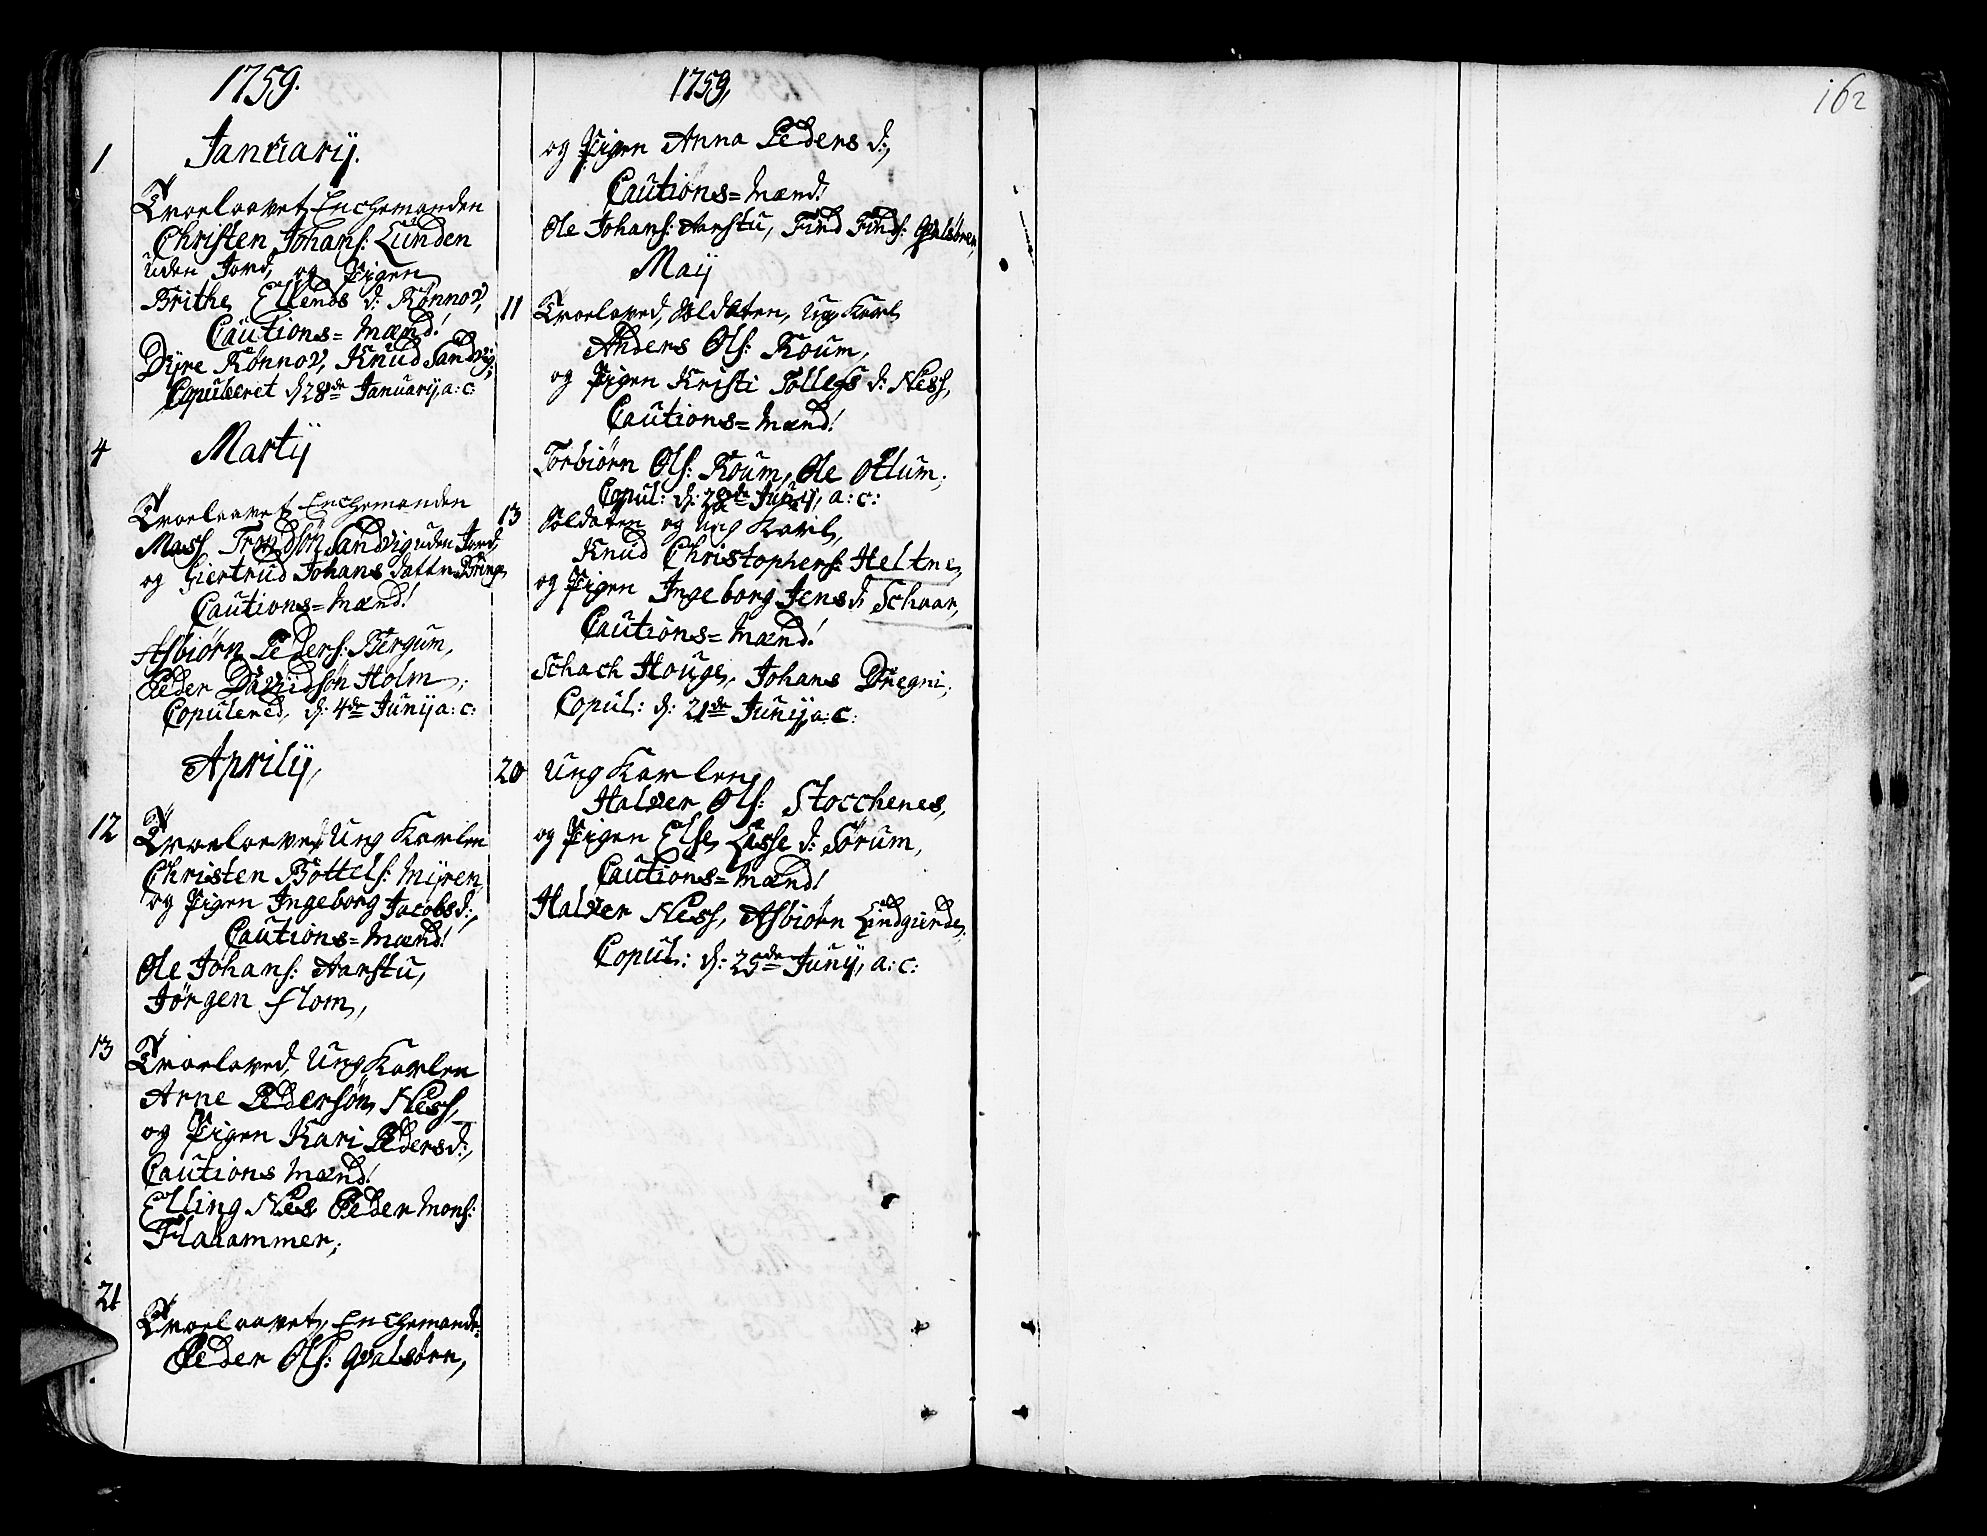 1759.
Januarij.
1
Troelovet Enchemanden
Christen Johans: Lunden
uden Jord, og Pigen
Brithe Ellends d: Rønnov,
Cautions= Mænd!
Dyre Rønnov, Knud Sandvig,
Copuleret d 28de Januarij a: c:
Martij
4
Troelovet Enchemanden
Mass Trondsøn Sandvig uden Jord,
og Giertrud Johans datter Bringe
Cautions= Mænd!
Asbiørn Peders: Bergum,
Peder Davidsøn Holm,
Copulered, d: 4de Junij a: c:
Aprilij,
12
Troelovet Ung Karlen
Christen Bottels: Myren,
og Pigen Ingeborg Jacobs d:,
Cautions= Mænd!
Ole Johans: Aarstu,
Jørgen Flom,
13
Troeloved, Ung Karlen
Arne Pedersøn Ness,
og Pigen Kari Peders d:,
Cautions Mænd!
Elling Nes Peder Mons:
Flahammer;
21
Troelovet, Enchemande=
Peder Ols: Qvalsøren,
1759,
og Pigen Anna Peders d:,
Cautions= Mænd!
Ole Johans: Aarstu, Find Finds: Qvalsøren,
Maij
11
Troeloved, Soldaten, Ung Karl
Anders Ols: Roum,
og Pigen Kristi Tollefs d: Ness,
Cautions= Mænd!
Torbiørn Ols: Roum, Ole Otlum;
Copul: d: 28de Junij, a: c:
13
Soldaten og Ung Karl,
Knud Christophers: Heltne,
og Pigen Ingeborg Jens d, Schaar,
Cautions= Mænd!
Schach Houge, Johans Dregni;
Copul: d: 21de Junij a: c:
20
Ung Karlen
Halver Ols: Stocchenes,
og Pigen Else Lasse d: Sørum,
Cautions= Mænd!
Halver Ness, Asbiørn Lindgunde,
Copul: d: 25de Junij, a: c:
162